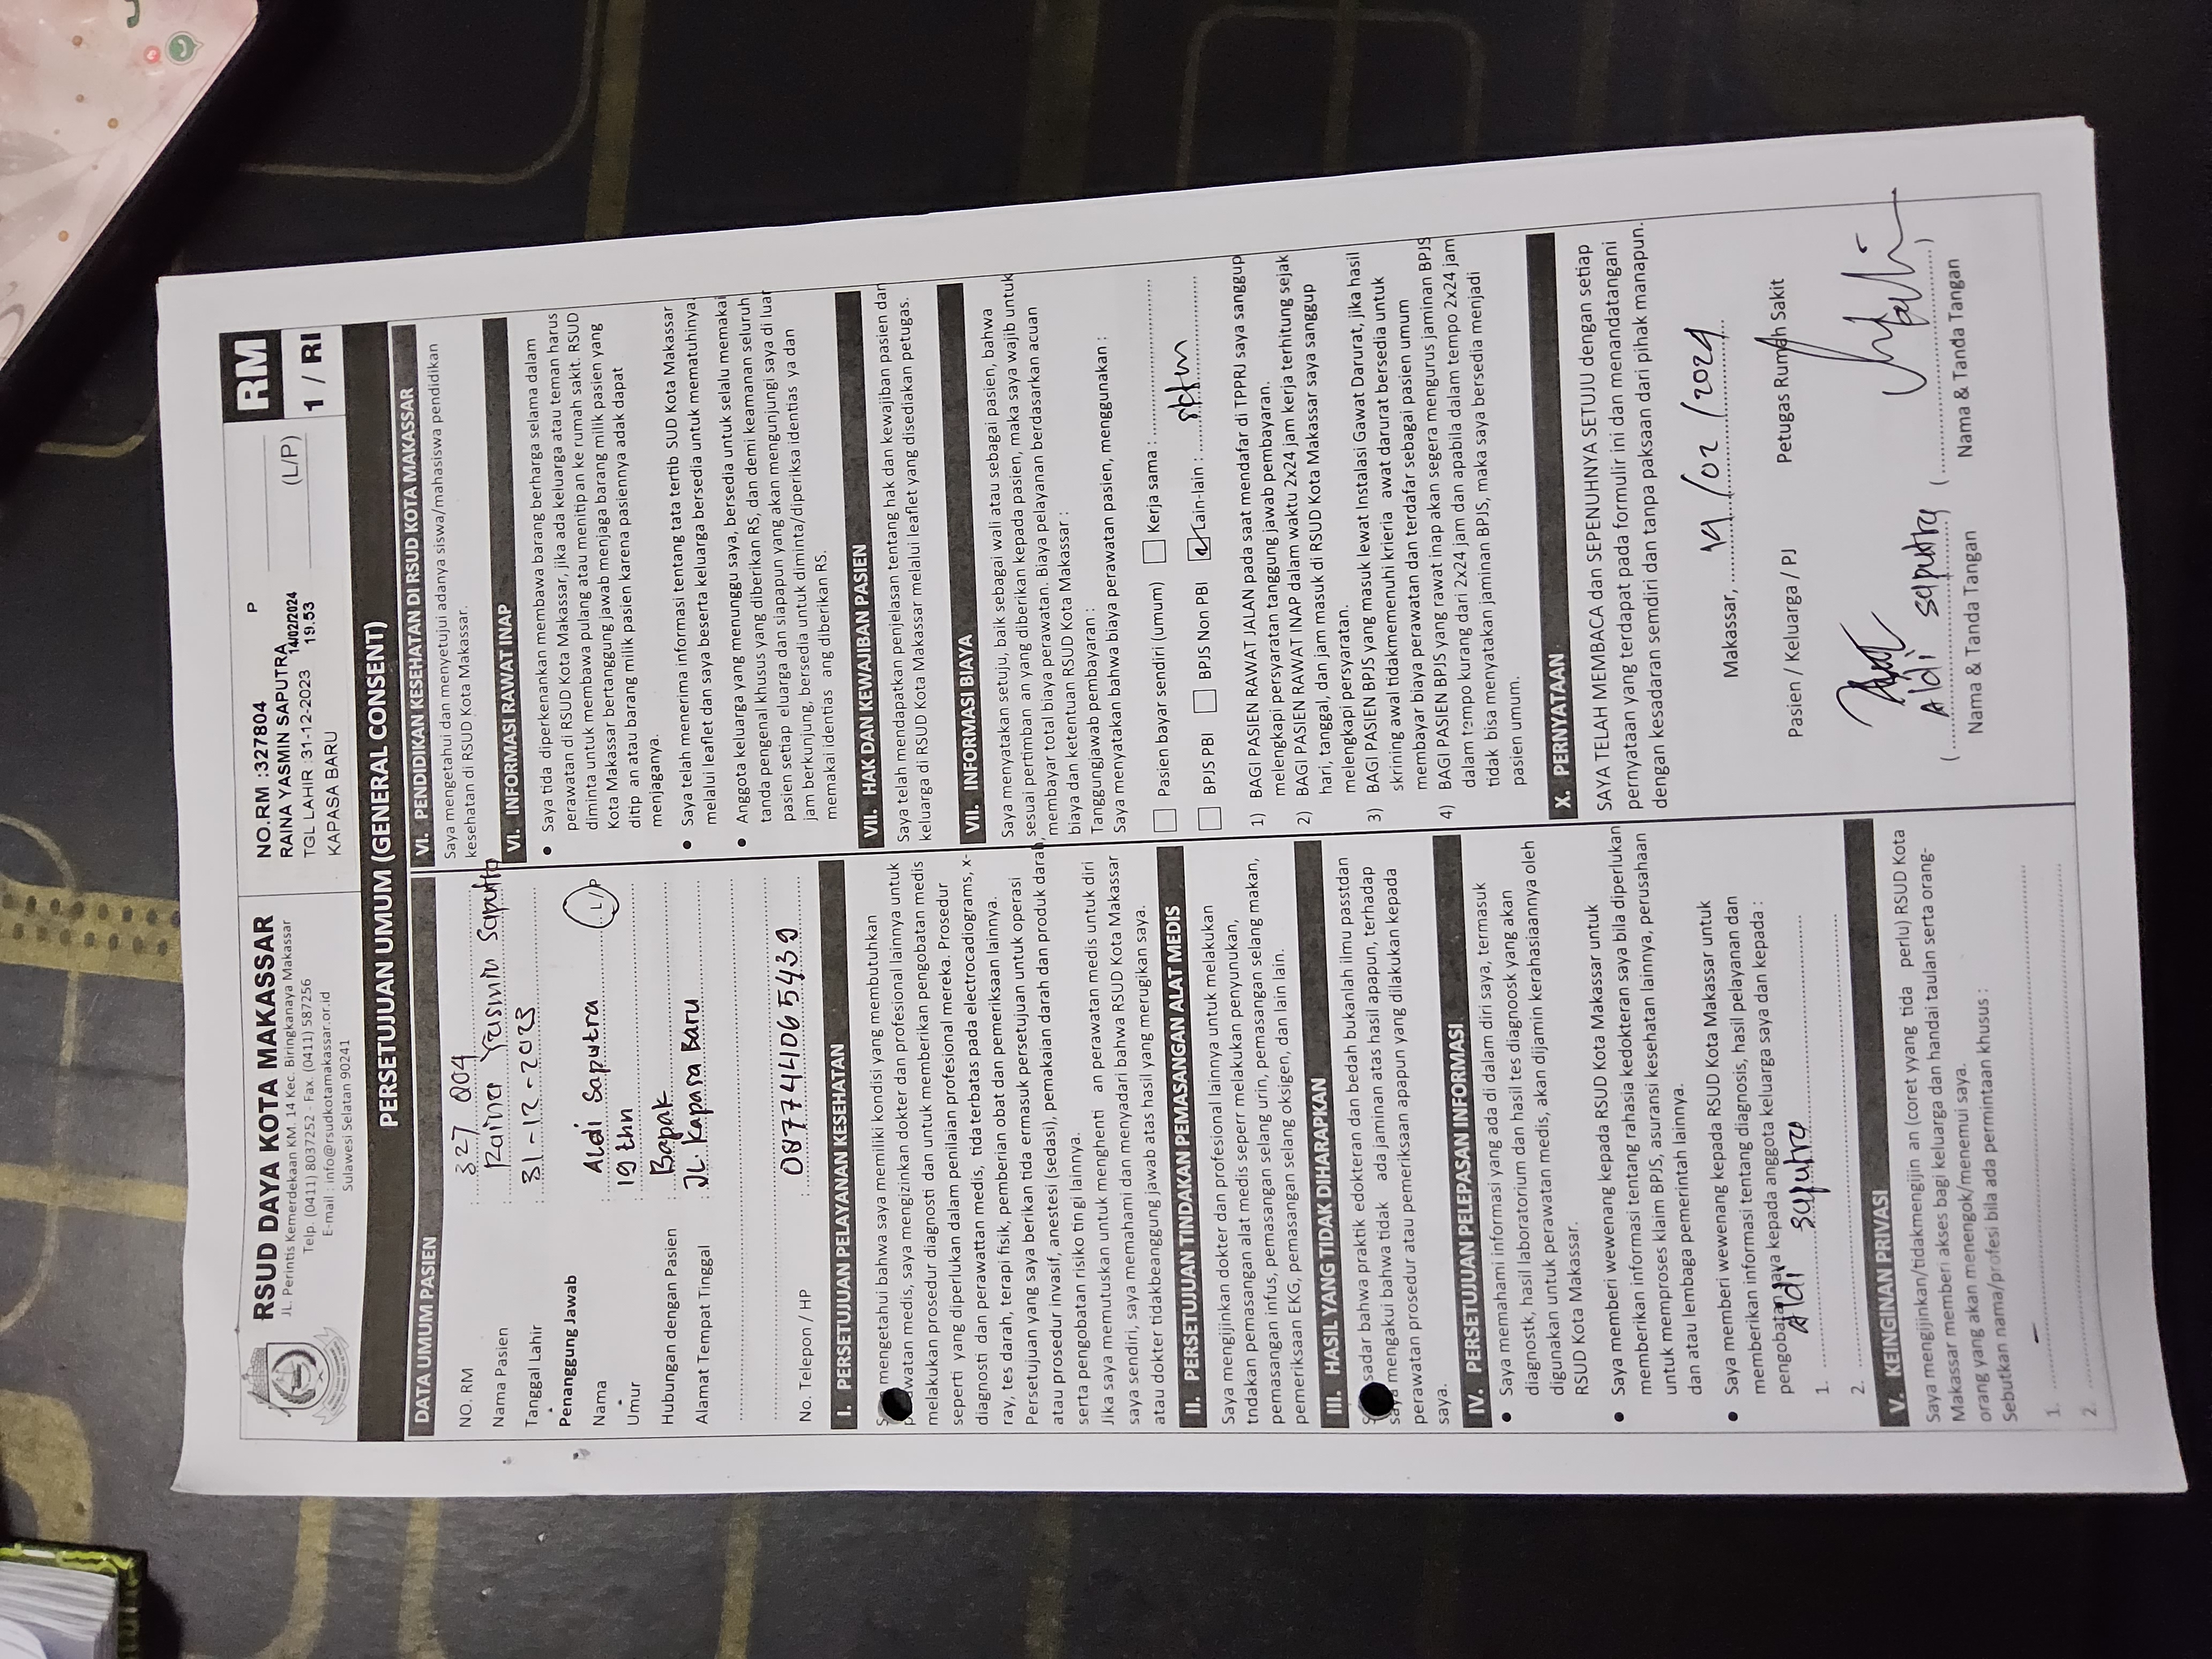 RSUD DAYA KOTA MAKASSAR
JL. Perintis Kemerdekaan KM. 14 Kec. Biringkanaya Makassar
Telp. (0411) 8037252 - Fax. (0411) 587256
E-mail : info@rsudkotamakassar.or.id
Sulawesi Selatan 90241
NO.RM :327804 P
RAINA YASMIN SAPUTRA
14/02/2024
TGL LAHIR :31-12-2023 19.53
KAPASA BARU
(L/P)
RM
1 / RI
PERSETUJUAN UMUM (GENERAL CONSENT)
DATA UMUM PASIEN
NO. RM : 327 804
Nama Pasien : Raina Yasmin Saputra
Tanggal Lahir : 31-12-2023
Penanggung Jawab
Nama : Aldi Saputra L/P
Umur : 19 thn
Hubungan dengan Pasien : Bapak
Alamat Tempat Tinggal : JL. Kapasa Baru
No. Telepon / HP : 087744065439
I. PERSETUJUAN PELAYANAN KESEHATAN
mengetahui bahwa saya memiliki kondisi yang membutuhkan
perawatan medis, saya mengizinkan dokter dan profesional lainnya untuk
melakukan prosedur diagnosti dan untuk memberikan pengobatan medis
seperti yang diperlukan dalam penilaian profesional mereka. Prosedur
diagnosti dan perawattan medis, tida terbatas pada electrocadiograms, x-
ray, tes darah, terapi fisik, pemberian obat dan pemeriksaan lainnya.
Persetujuan yang saya berikan tida ermasuk persetujuan untuk operasi
atau prosedur invasif, anestesi (sedasi), pemakaian darah dan produk darah,
serta pengobatan risiko tin gi lainnya.
Jika saya memutuskan untuk menghenti an perawatan medis untuk diri
saya sendiri, saya memahami dan menyadari bahwa RSUD Kota Makassar
atau dokter tidakbeanggung jawab atas hasil yang merugikan saya.
II. PERSETUJUAN TINDAKAN PEMASANGAN ALAT MEDIS
Saya mengijinkan dokter dan profesional lainnya untuk melakukan
tndakan pemasangan alat medis seperr melakukan penyunukan,
pemasangan infus, pemasangan selang urin, pemasangan selang makan,
pemeriksaan EKG, pemasangan selang oksigen, dan lain lain.
III. HASIL YANG TIDAK DIHARAPKAN
sadar bahwa praktik edokteran dan bedah bukanlah ilmu passtdan
saya mengakui bahwa tidak ada jaminan atas hasil apapun, terhadap
perawatan prosedur atau pemeriksaan apapun yang dilakukan kepada
saya.
IV. PERSETUJUAN PELEPASAN INFORMASI
• Saya memahami informasi yang ada di dalam diri saya, termasuk
diagnostk, hasil laboratorium dan hasil tes diagnoosk yang akan
digunakan untuk perawatan medis, akan dijamin kerahasiaannya oleh
RSUD Kota Makassar.
• Saya memberi wewenang kepada RSUD Kota Makassar untuk
memberikan informasi tentang rahasia kedokteran saya bila diperlukan
untuk memproses klaim BPJS, asuransi kesehatan lainnya, perusahaan
dan atau lembaga pemerintah lainnya.
• Saya memberi wewenang kepada RSUD Kota Makassar untuk
memberikan informasi tentang diagnosis, hasil pelayanan dan
pengobatan saya kepada anggota keluarga saya dan kepada :
1. Aldi saputra
2.
V. KEINGINAN PRIVASI
Saya mengijinkan/tidakmengijin an (coret yyang tida perlu) RSUD Kota
Makassar memberi akses bagi keluarga dan handai taulan serta orang-
orang yang akan menengok/menemui saya.
Sebutkan nama/profesi bila ada permintaan khusus :
1. –
2.
VI. PENDIDIKAN KESEHATAN DI RSUD KOTA MAKASSAR
Saya mengetahui dan menyetujui adanya siswa/mahasiswa pendidikan
kesehatan di RSUD Kota Makassar.
VI. INFORMASI RAWAT INAP
• Saya tida diperkenankan membawa barang berharga selama dalam
perawatan di RSUD Kota Makassar, jika ada keluarga atau teman harus
diminta untuk membawa pulang atau menitip an ke rumah sakit. RSUD
Kota Makassar bertanggung jawab menjaga barang milik pasien yang
ditip an atau barang milik pasien karena pasiennya adak dapat
menjaganya.
• Saya telah menerima informasi tentang tata tertib SUD Kota Makassar
melalui leaflet dan saya beserta keluarga bersedia untuk mematuhinya.
• Anggota keluarga yang menunggu saya, bersedia untuk selalu memakai
tanda pengenal khusus yang diberikan RS, dan demi keamanan seluruh
pasien setiap eluarga dan siapapun yang akan mengunjungi saya di luar
jam berkunjung, bersedia untuk diminta/diperiksa identias ya dan
memakai identias ang diberikan RS.
VII. HAK DAN KEWAJIBAN PASIEN
Saya telah mendapatkan penjelasan tentang hak dan kewajiban pasien dan
keluarga di RSUD Kota Makassar melalui leaflet yang disediakan petugas.
VII. INFORMASI BIAYA
Saya menyatakan setuju, baik sebagai wali atau sebagai pasien, bahwa
sesuai pertimban an yang diberikan kepada pasien, maka saya wajib untuk
membayar total biaya perawatan. Biaya pelayanan berdasarkan acuan
biaya dan ketentuan RSUD Kota Makassar :
Tanggungjawab pembayaran :
Saya menyatakan bahwa biaya perawatan pasien, menggunakan :
Pasien bayar sendiri (umum) Kerja sama :
BPJS PBI BPJS Non PBI Lain-lain : sktm
1) BAGI PASIEN RAWAT JALAN pada saat mendafar di TPPRJ saya sanggup
melengkapi persyaratan tanggung jawab pembayaran.
2) BAGI PASIEN RAWAT INAP dalam waktu 2x24 jam kerja terhitung sejak
hari, tanggal, dan jam masuk di RSUD Kota Makassar saya sanggup
melengkapi persyaratan.
3) BAGI PASIEN BPJS yang masuk lewat Instalasi Gawat Darurat, jika hasil
skrining awal tidakmemenuhi krieria awat darurat bersedia untuk
membayar biaya perawatan dan terdafar sebagai pasien umum
4) BAGI PASIEN BPJS yang rawat inap akan segera mengurus jaminan BPJS
dalam tempo kurang dari 2x24 jam dan apabila dalam tempo 2x24 jam
tidak bisa menyatakan jaminan BPJS, maka saya bersedia menjadi
pasien umum.
X. PERNYATAAN
SAYA TELAH MEMBACA dan SEPENUHNYA SETUJU dengan setiap
pernyataan yang terdapat pada formulir ini dan menandatangani
dengan kesadaran semdiri dan tanpa paksaan dari pihak manapun.
Makassar, 14/02/2024
Pasien / Keluarga / PJ Petugas Rumah Sakit
( Aldi saputra ) ( )
Nama & Tanda Tangan Nama & Tanda Tangan